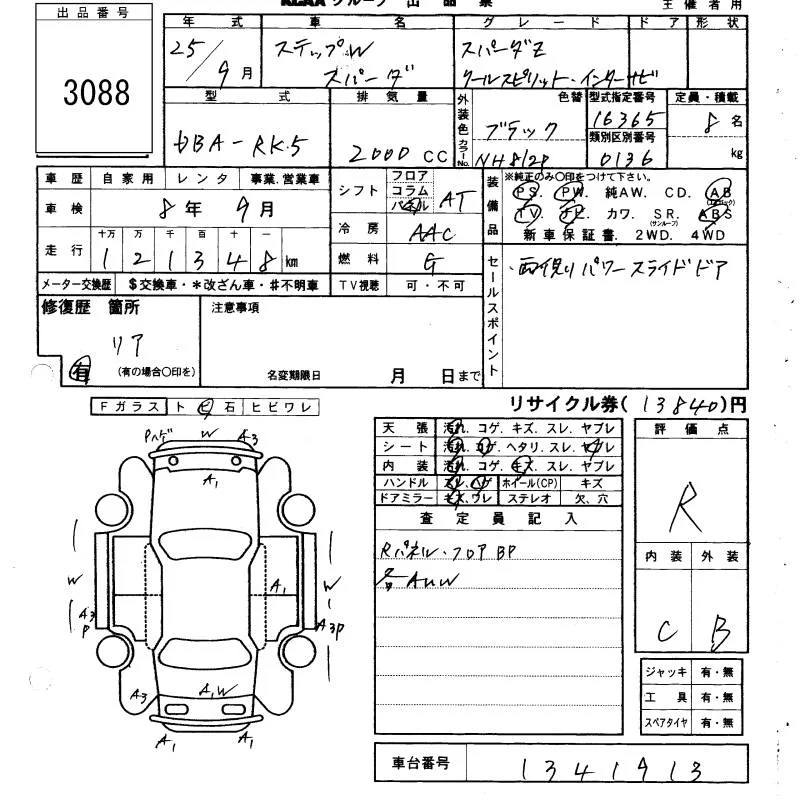 KCAA グループ 出品票
主催者用
出品番号
3088
年式 車名 グレード ドア 形状
25/9月 ステップW スパーダ スパーダZ クールスピリット・インターナビ
型式 排気量 外装色 色替 カラーNo. 型式指定番号 定員・積載
DBA-RK5 2000 CC ブラック 16365 8名
類別区別番号
NH812P 0136 kg
車歴 自家用 レンタ 事業.営業車
車検 8年 9月
走行 十万 万 千 百 十 一
121348 km
メーター交換歴 $交換車・*改ざん車・#不明車
シフト フロア コラム パネル AT
冷房 AAC
燃料 G
TV視聴 可・不可
装備品 ※純正のみ○印をつけて下さい。
PS. PW. 純AW. CD. AB(エアバック)
TV. ナビ. カワ. SR.(サンルーフ) ABS
新車保証書. 2WD. 4WD
セールスポイント
・両側パワースライドドア
修復歴 箇所
リア
有 (有の場合○印を)
注意事項
名変期限日 月 日まで
リサイクル券(13840)円
Fガラス トビ石 ヒビワレ
天張 汚れ. コゲ. キズ. スレ. ヤブレ
シート 汚れ. コゲ. ヘタリ. スレ. ヤブレ
内装 汚れ. コゲ. キズ. スレ. ヤブレ
ハンドル スレ. ハゲ ホイール(CP) キズ
ドアミラー キズ. ワレ ステレオ 欠、穴
査定員記入
Rパネル・フロアBP
各AUW
評価点
R
内装 外装
C B
ジャッキ 有・無
工具 有・無
スペアタイヤ 有・無
車台番号 1341913
Pハゲ W A3
A1
W A1 W
A3 P A3P
A3 A1W
A1 A1